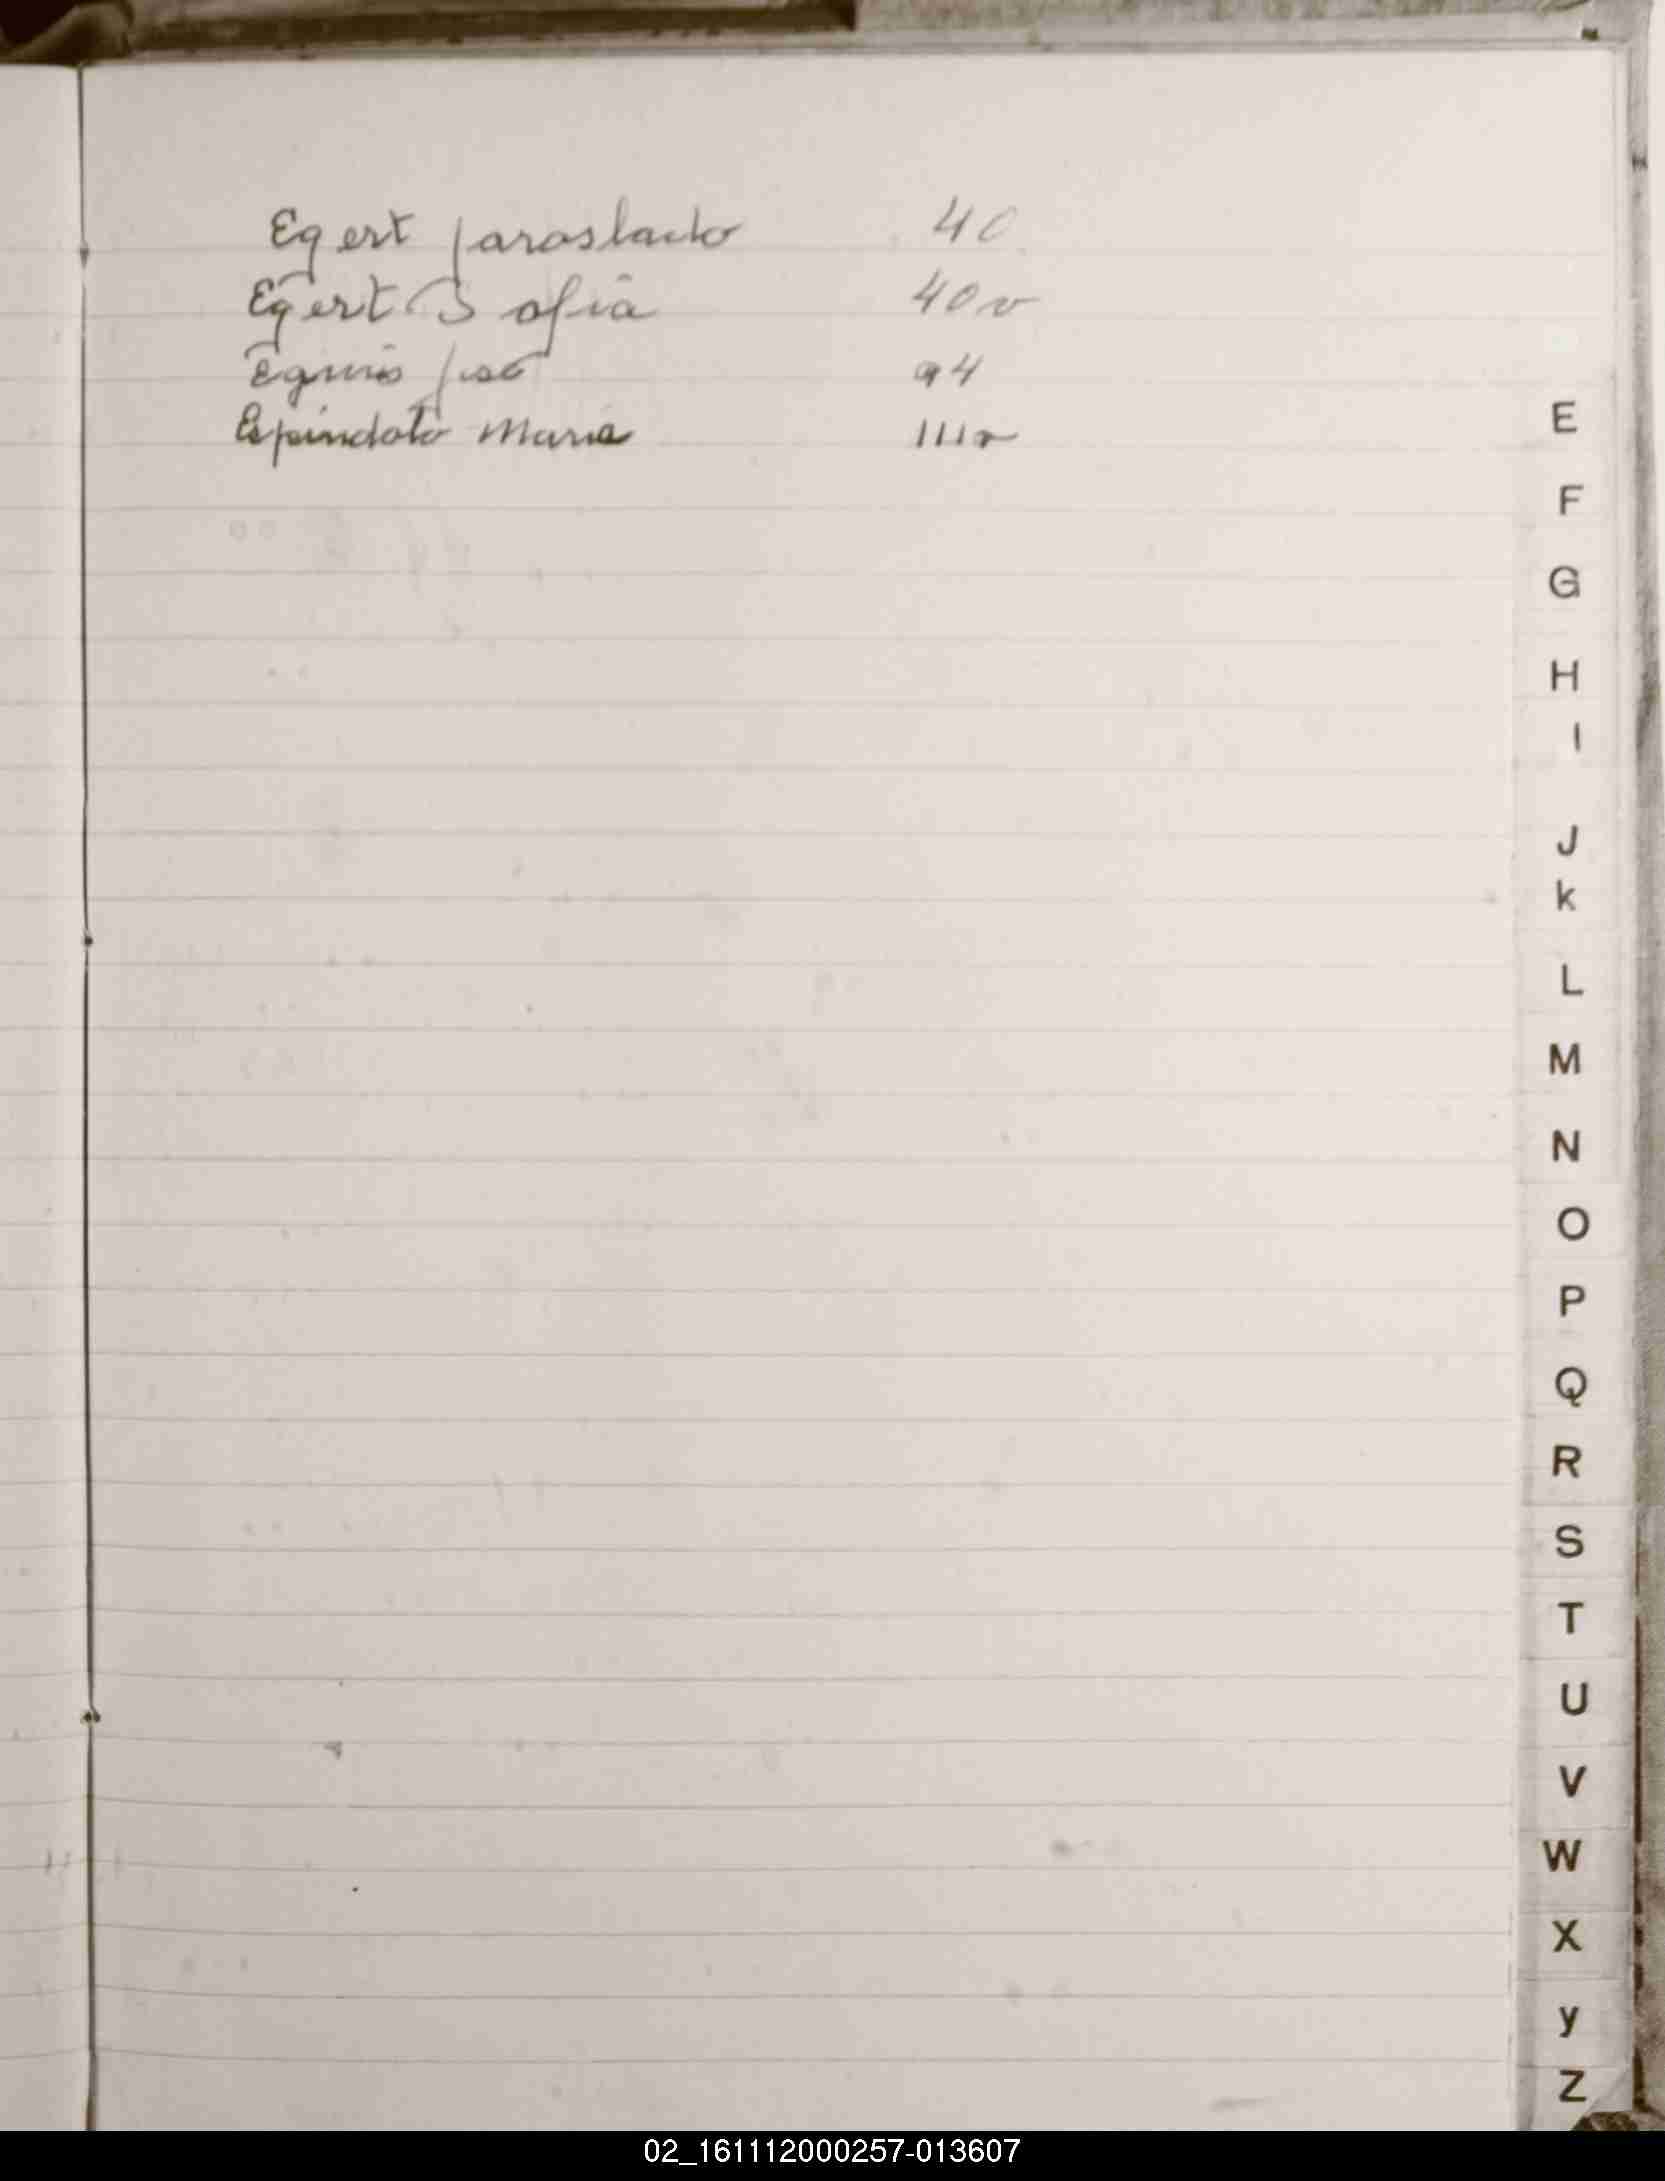 Egert Jaroslado 40
Egert Sofia 40v
José 94
Espindola Maria 111v
E
F
G
H
I
J
K
L
M
N
O
P
Q
R
S
T
U
V
W
X
y
Z
02_161112000257-013607